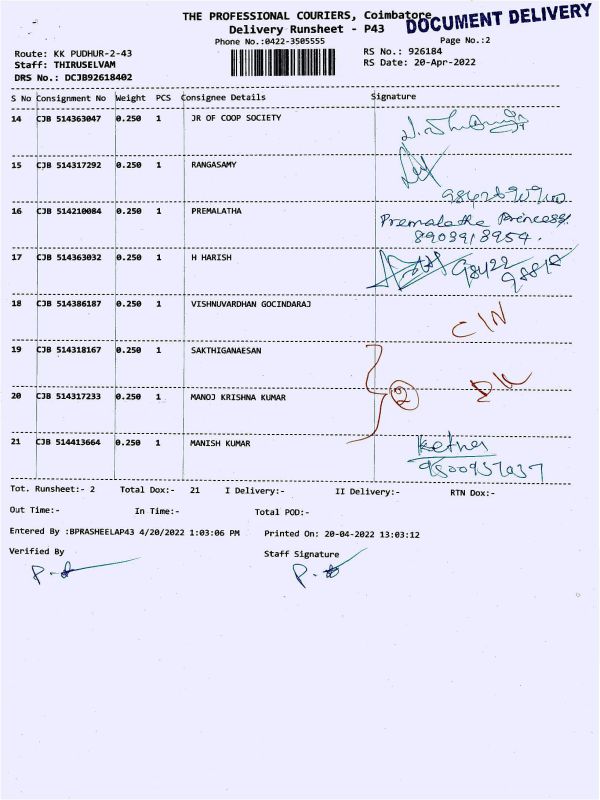 THE PROFESSIONAL COURIERS, Coimbatore
DOCUMENT DELIVERY
Delivery Runsheet - P43
Phone No.:0422-3505555
Page No.:2
Route: KK PUDHUR-2-43
RS No.: 926184
Staff: THIRUSELVAM
RS Date: 20-Apr-2022
DRS No.: DCJB92618402
S No Consignment No Weight PCS Consignee Details Signature
14 CJB 514363047 0.250 1 JR OF COOP SOCIETY
15 CJB 514317292 0.250 1 RANGASAMY
16 CJB 514210084 0.250 1 PREMALATHA Premalatha Princess
8903918954.
17 CJB 514363032 0.250 1 H HARISH 98422
18 CJB 514386187 0.250 1 VISHNUVARDHAN GOCINDARAJ
CIN
19 CJB 514318167 0.250 1 SAKTHIGANAESAN
2
20 CJB 514317233 0.250 1 MANOJ KRISHNA KUMAR
21 CJB 514413664 0.250 1 MANISH KUMAR
Tot. Runsheet:- 2 Total Dox:- 21 I Delivery:- II Delivery:- RTN Dox:-
Out Time:- In Time:- Total POD:-
Entered By :BPRASHEELAP43 4/20/2022 1:03:06 PM Printed On: 20-04-2022 13:03:12
Verified By Staff Signature